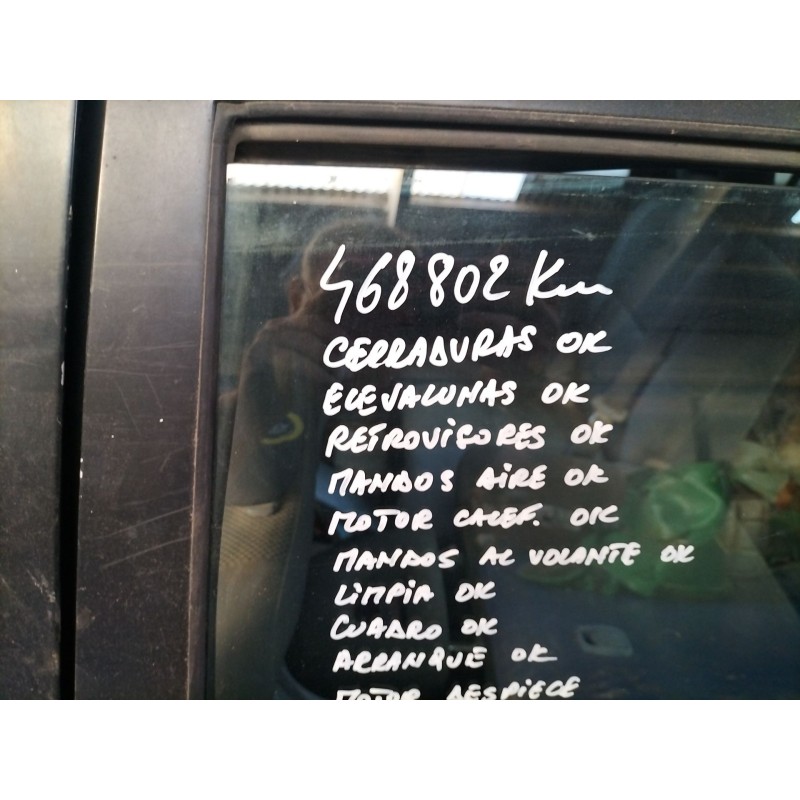 468802 Km
CERRADURAS OK
ELEVALUNAS OK
RETROVISORES OK
MANDOS AIRE OK
MOTOR CALEF. OK
MANDOS AL VOLANTE OK
LIMPIA OK
CUADRO OK
ARRANQUE OK
MOTOR DESPIECE